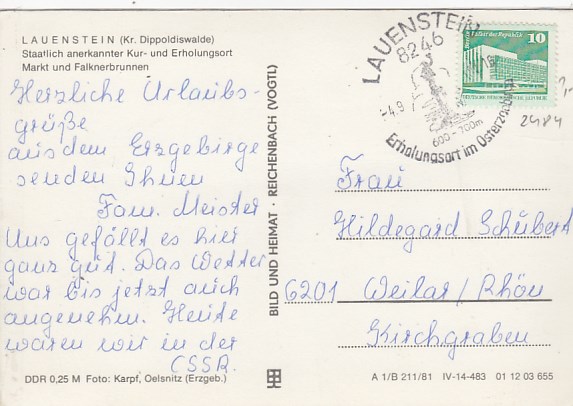 LAUENSTEIN (Kr. Dippoldiswalde)
Staatlich anerkannter Kur- und Erholungsort
Markt und Falknerbrunnen
Herzliche Urlaubs-
grüße
aus dem Erzgebirge
senden Ihnen
Fam. Meister
Uns gefällt es hier
ganz gut. Das Wetter
war bis jetzt auch
angenehm. Heute
waren wir in der
CSSR.
DDR 0,25 M Foto: Karpf, Oelsnitz (Erzgeb.)
BILD UND HEIMAT · REICHENBACH (VOGTL)
LAUENSTEIN
8246
-4.9
600-700m
Erholungsort im Osterzgebirge
10
2484
Frau
Hildegard Schubert
6201 Weilar/Rhön
Kirchgraben
A 1/B 211/81 IV-14-483 01 12 03 655